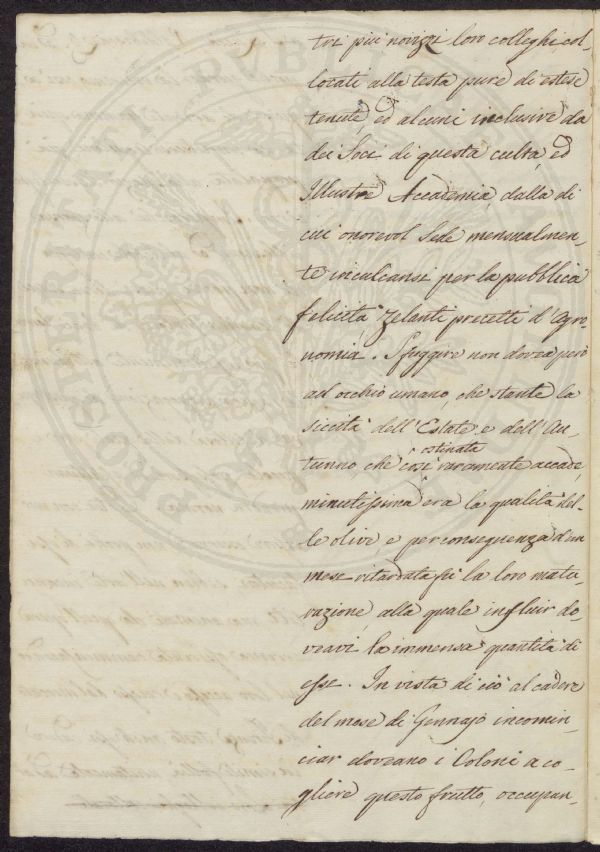 tri più novizzi loro colleghi col-
locati alla testa pure di estese
tenute, ed alcuni inclusive da
dei Soci di questa culta, ed
Illustre Accademia, dalla di
cui onorevol Sede mensualmen-
te inculcansi per la pubblica
felicità zelanti precetti d'Agro-
nomia. Sfuggire non dovea però
ad occhio umano, che stante la
siccità dell'Estate, e dell'Au-
tunno che così ostinata raramente accade,
minutissima era la qualità del-
le olive e per conseguenza d'un
mese ritardata fù la loro matu-
razione, alla quale influir do-
veavi la immensa quantità di
esse. In vista di ciò al cadere
del mese di Gennajo incomin-
ciar doveano i Coloni a co-
gliere questo frutto, occupan-
PROSPERITATI PUBLICAE